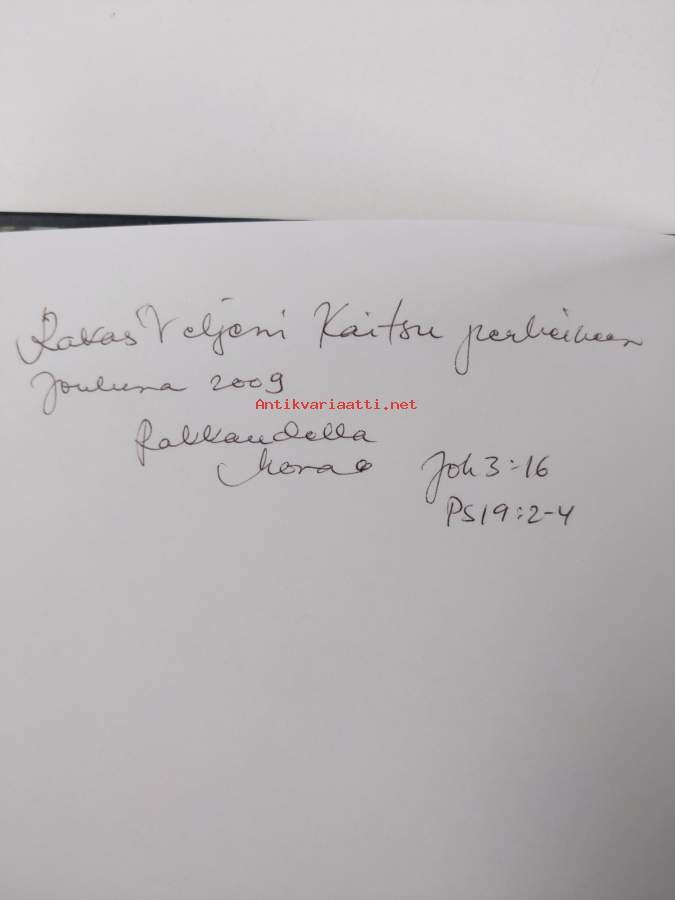 Rakas Veljeni Kaitsu perheineen
Jouluna 2009
Antikvariaatti.net
Rakkaudella
Joh 3:16
Ps 19:2-4